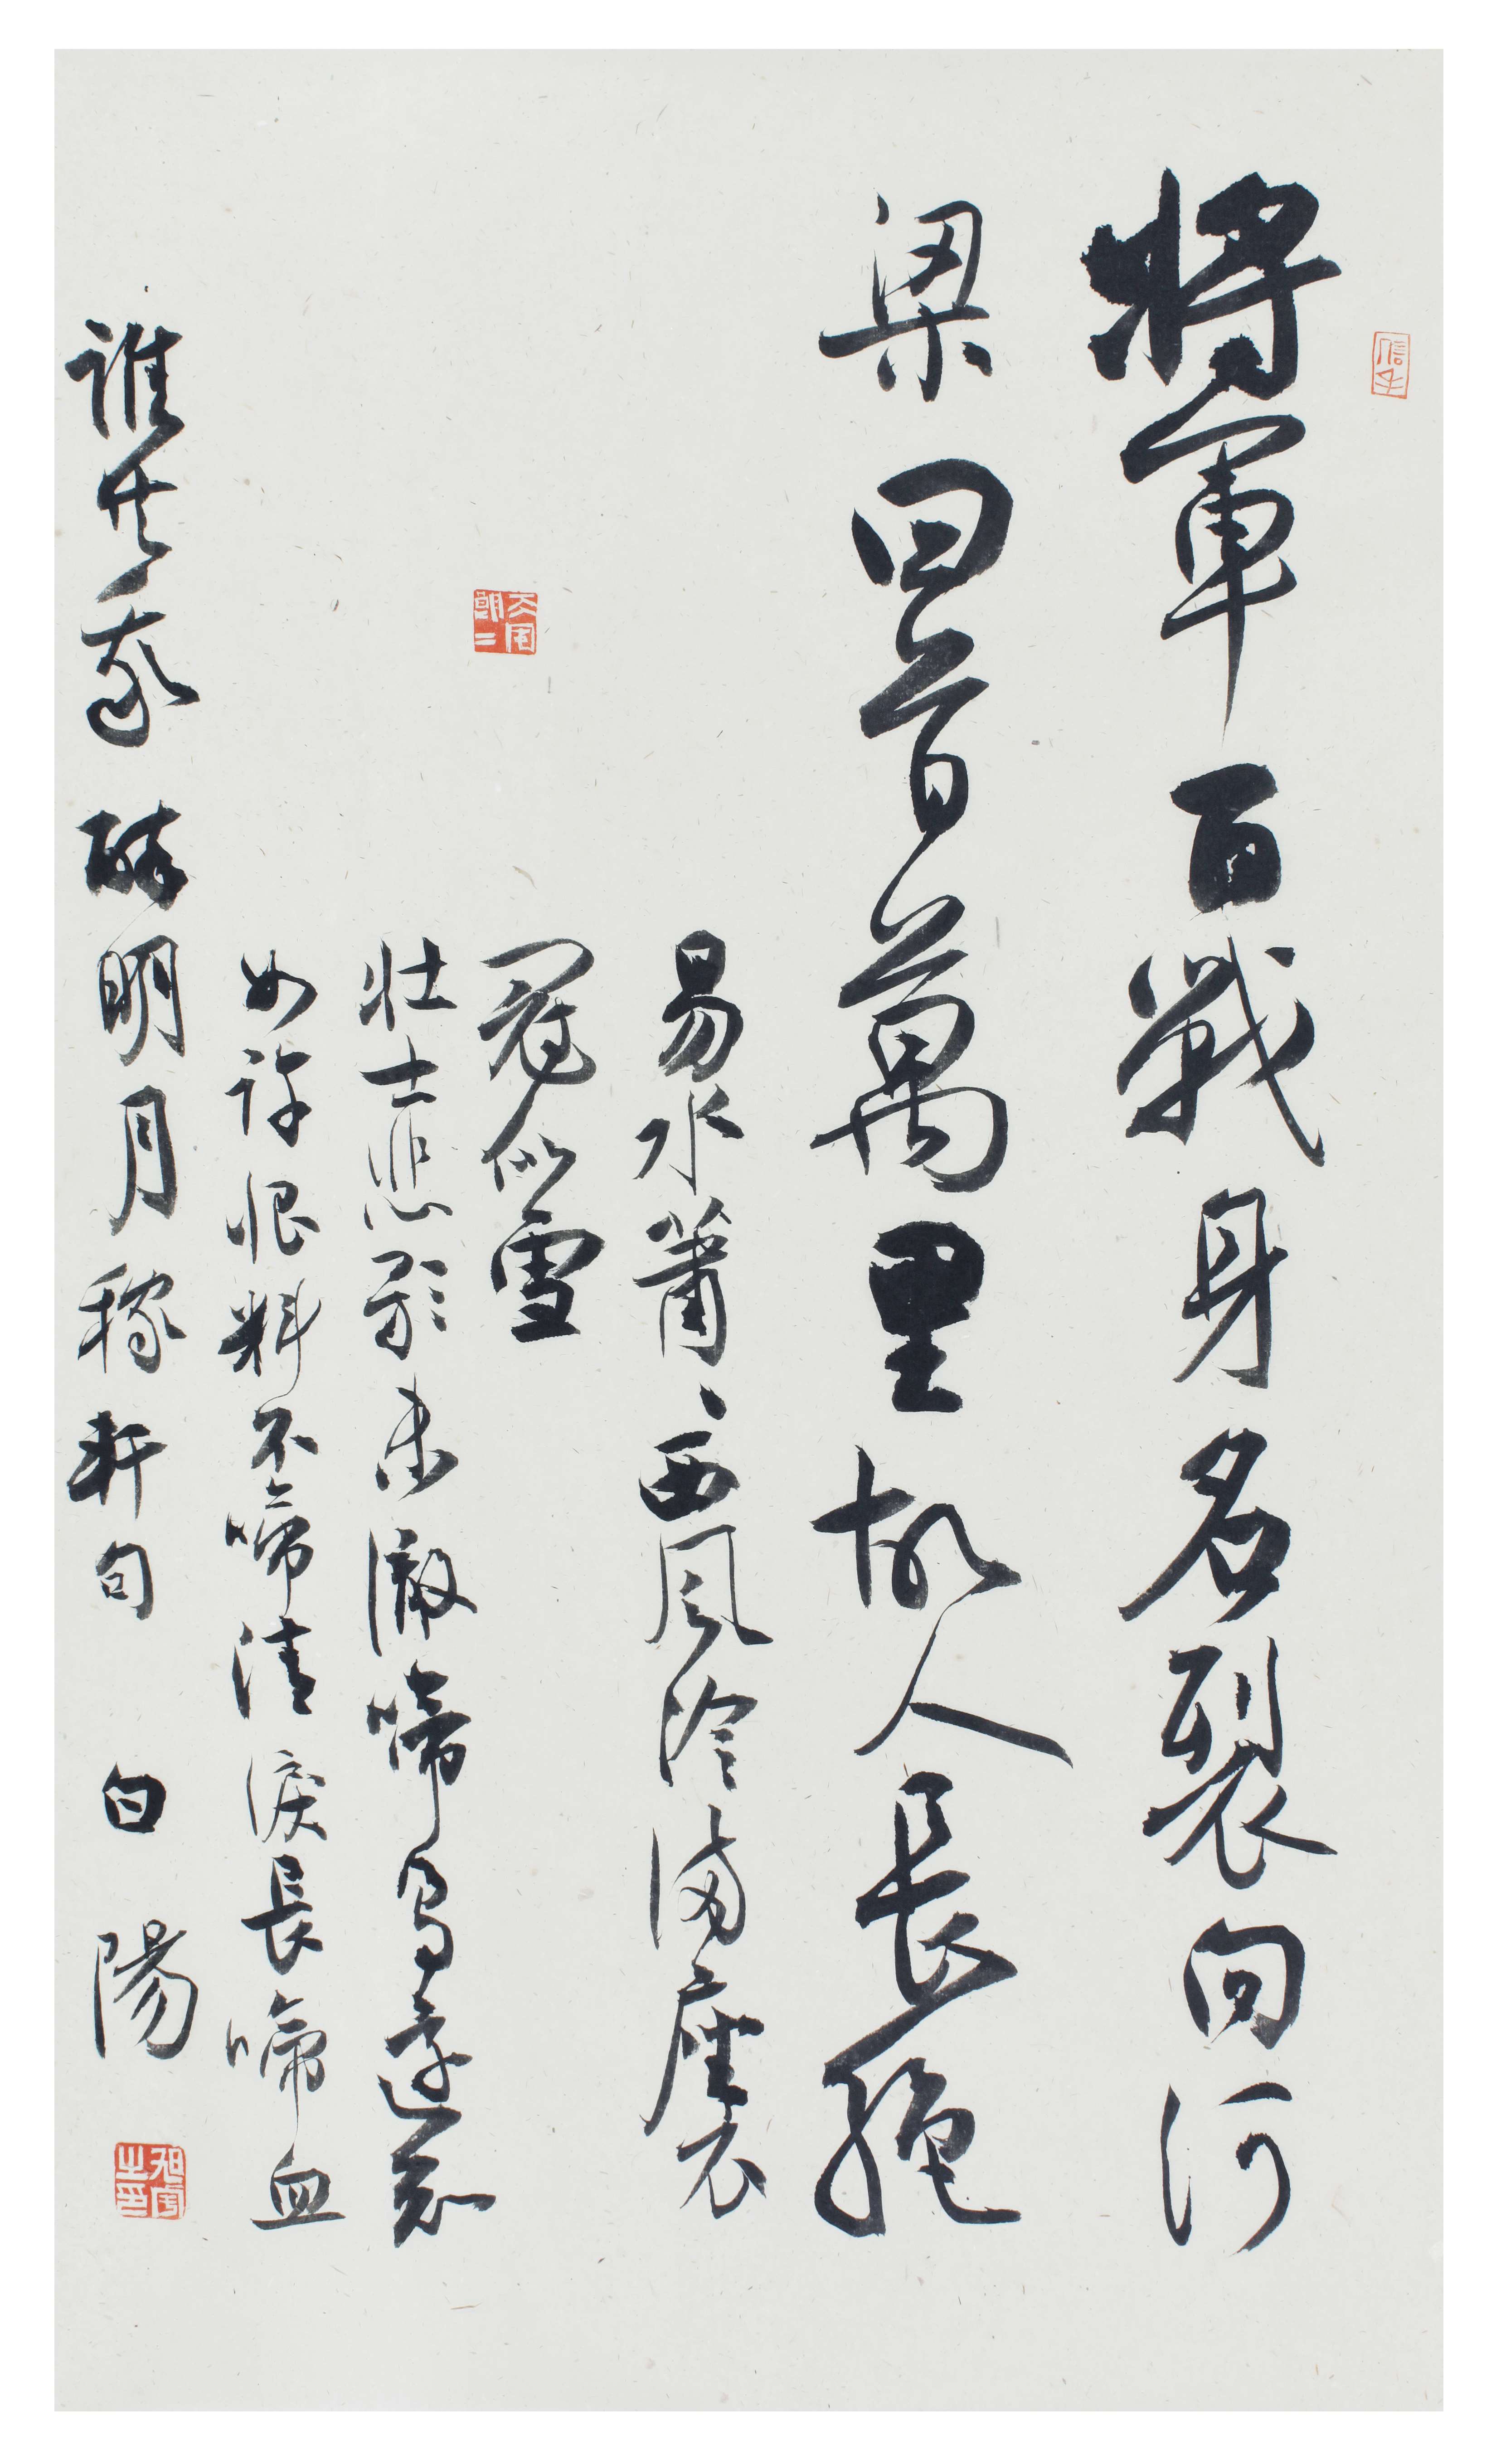 將軍百戰身名裂向河
梁回首萬里故人長絕
易水蕭、西風冷滿座衣
冠似雪
壯士悲歌未徹啼鳥還知
如許恨料不啼清淚長啼血
誰共我醉明月稼軒句 白陽
信手